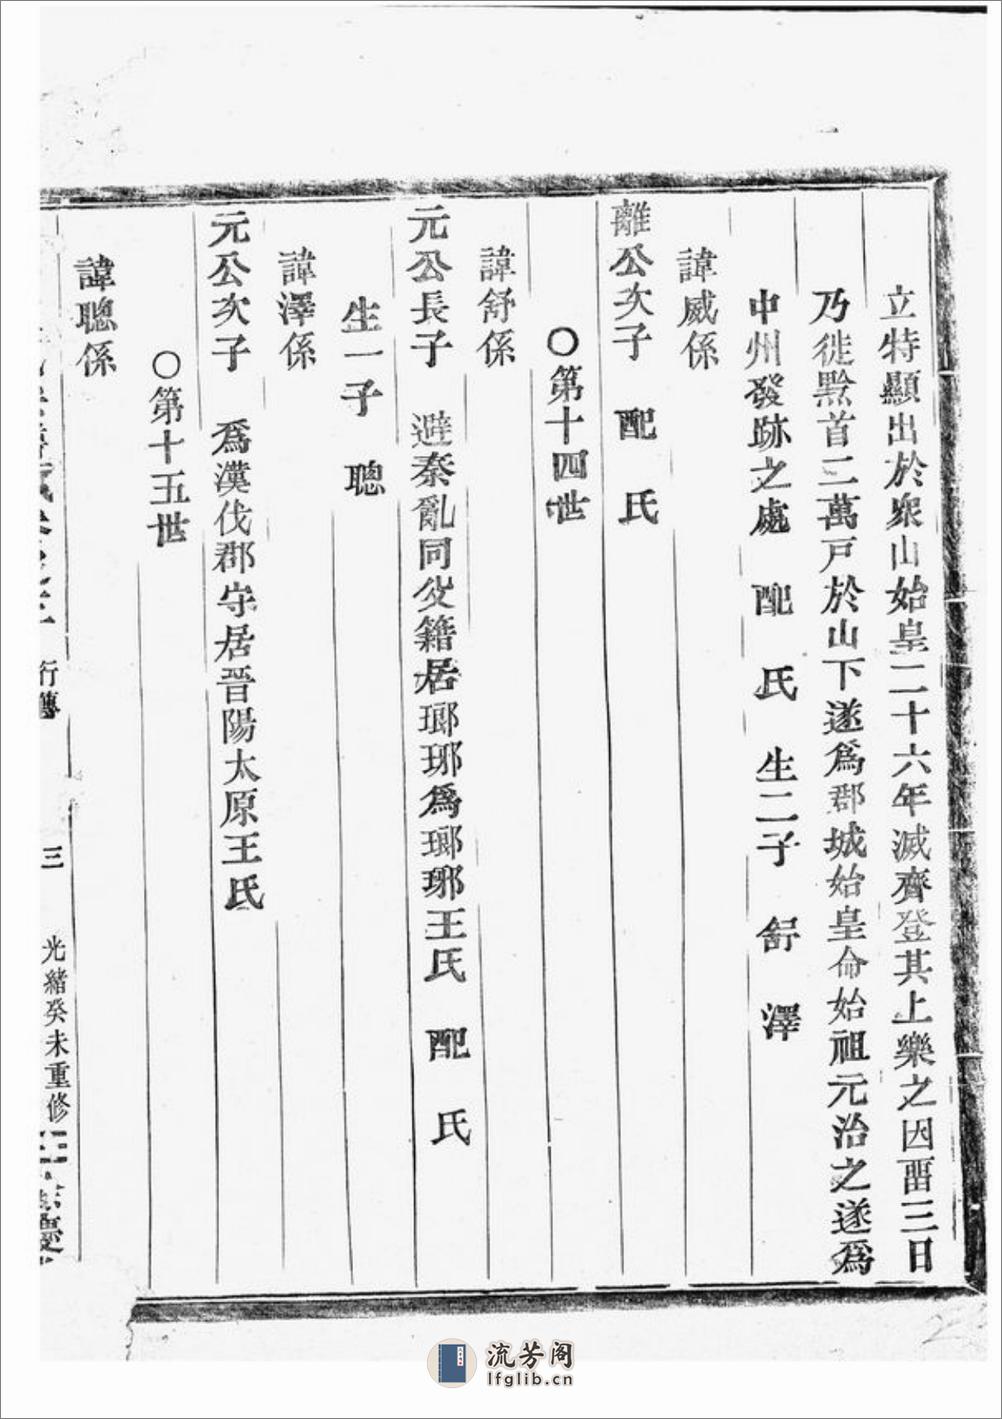 立特顯出於衆山始皇二十六年滅齊登其上樂之因畱三日
乃徙黔首二萬戸於山下遂爲郡城始皇命始祖元治之遂爲
中州發跡之處 配 氏 生二子 舒 澤
諱威係
離公次子 配 氏
○第十四世
諱舒係
元公長子 避秦亂同父籍居瑯琊爲瑯琊王氏 配 氏
生一子 聰
諱澤係
元公次子 爲漢伐郡守居晉陽太原王氏
○第十五世
諱聰係
行傳
三
光緒癸未重修
流芳阁
lfglib.cn